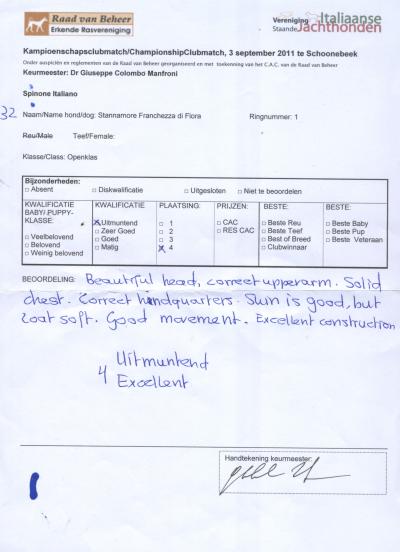 Raad van Beheer
Erkende Rasvereniging
Vereniging Italiaanse
Staande Jachthonden
Kampioenschapsclubmatch/ChampionshipClubmatch, 3 september 2011 te Schoonebeek
Onder auspiciën en reglementen van de Raad van Beheer georganiseerd en met toekenning van het C.A.C. van de Raad van Beheer
Keurmeester: Dr Giuseppe Colombo Manfroni
Spinone Italiano
32 Naam/Name hond/dog: Stannamore Franchezza di Fiora Ringnummer: 1
Reu/Male Teef/Female:
Klasse/Class: Openklas
Bijzonderheden:
□ Absent □ Diskwalificatie □ Uitgesloten □ Niet te beoordelen
KWALIFICATIE BABY/PUPPY-KLASSE:
□ Veelbelovend
□ Belovend
□ Weinig belovend
KWALIFICATIE
x Uitmuntend
□ Zeer Goed
□ Goed
□ Matig
PLAATSING:
□ 1
□ 2
□ 3
x 4
PRIJZEN:
□ CAC
□ RES CAC
BESTE:
□ Beste Reu
□ Beste Teef
□ Best of Breed
□ Clubwinnaar
BESTE:
□ Beste Baby
□ Beste Pup
□ Beste Veteraan
BEOORDELING: Beautiful head, correct upperarm. Solid
chest. Correct hindquarters. Skin is good, but
coat soft. Good movement. Excellent construction
Uitmuntend
4 Excellent
Handtekening keurmeester: